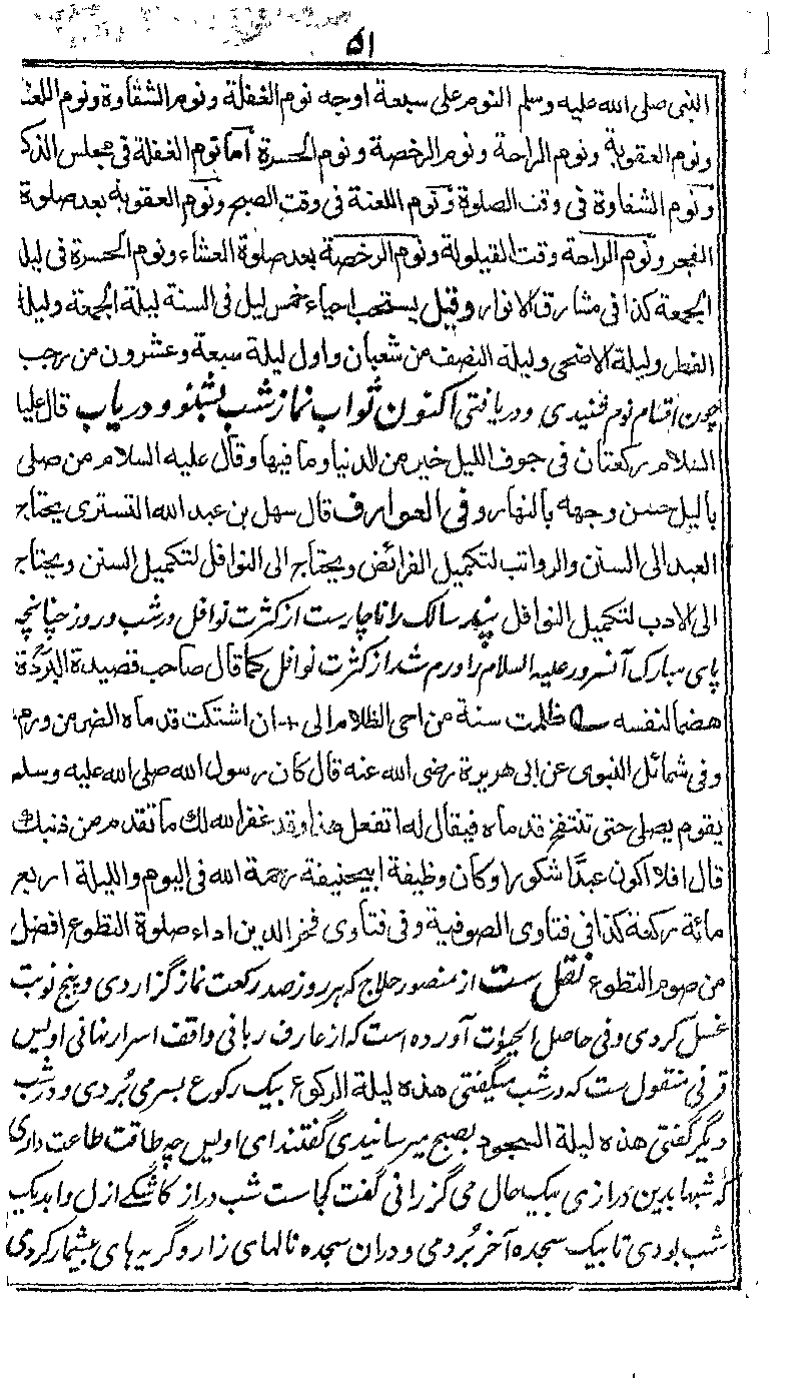 ۵۱
النبی صلی الله علیه وسلم النوم علی سبعة اوجه نوم الغفلة ونوم الشقاوة ونوم اللعنة
ونوم العقوبة ونوم الراحة ونوم الرخصة ونوم الحسرة اما نوم الغفلة فی مجلس الذکر
ونوم الشقاوة فی وقت الصلوة ونوم اللعنة فی وقت الصبح ونوم العقوبة بعد صلوة
الفجر ونوم الراحة وقت القیلولة ونوم الرخصة بعد صلوة العشاء ونوم الحسرة فی لیل
الجمعة کذا فی مشارق الانوار وقیل یستحب احیاء خمس لیل فی السنة لیلة الجمعة ولیلة
الفطر ولیلة الاضحی ولیلة النصف من شعبان واول لیلة سبعة وعشرون من رجب
چون اقسام نوم شنیدی ودریافتی اکنون ثواب نماز شب بشنو ودریاب قال علیه
السلام رکعتان فی جوف اللیل خیر من الدنیا وما فیها وقال علیه السلام من صلی
بالیل حسن وجهه بالنهار وفی العوارف قال سهل بن عبد الله التستری یحتاج
العبد الی السنن والرواتب لتکمیل الفرائض ویحتاج الی النوافل لتکمیل السنن ویحتاج
الی الادب لتکمیل النوافل پس سالک را ناچارست از کثرت نوافل در شب وروز چنانچه
پای مبارک آنسرور علیه السلام را ورم شد از کثرت نوافل کما قال صاحب قصیدة البردة
هضما لنفسه ظلمت سنة من احی الظلام الی + ان اشتکت قدماه الضر من ورم
وفی شمائل النبوی عن ابی هریرة رضی الله عنه قال کان رسول الله صلی الله علیه وسلم
یقوم یصلی حتی تنتفخ قدماه فیقال له اتفعل هذا وقد غفر الله لک ما تقدم من ذنبک
قال افلا اکون عبدًا شکورا وکان وظیفة ابیحنیفة رحمة الله فی الیوم واللیلة اربع
مائة رکعة کذا فی فتاوی الصوفیة وفی فتاوی فخر الدین اداء صلوة التطوع افضل
من صوم التطوع نقل ست از منصور حلاج که هر روز صد رکعت نماز گزاردی وپنج نوبت
غسل کردی وفی حاصل الحیوٰت آورده است که از عارف ربانی واقف اسرار نهانی اویس
قرنی منقول ست که در شب میگفتی هذه لیلة الرکوع بیک رکوع بسر می بُردی ودر شب
دیگر گفتی هذه لیلة السجود بصبح میرسانیدی گفتند ای اویس چه طاقت طاعت داری
که شبها بدین درازی بیک حال می گزرانی گفت کجاست شب دراز کاشکے ازل وابد یک
شب بودی تا بیک سجده آخر بُردمی ودران سجده نالهای زار وگریه های بیشمار کردمی